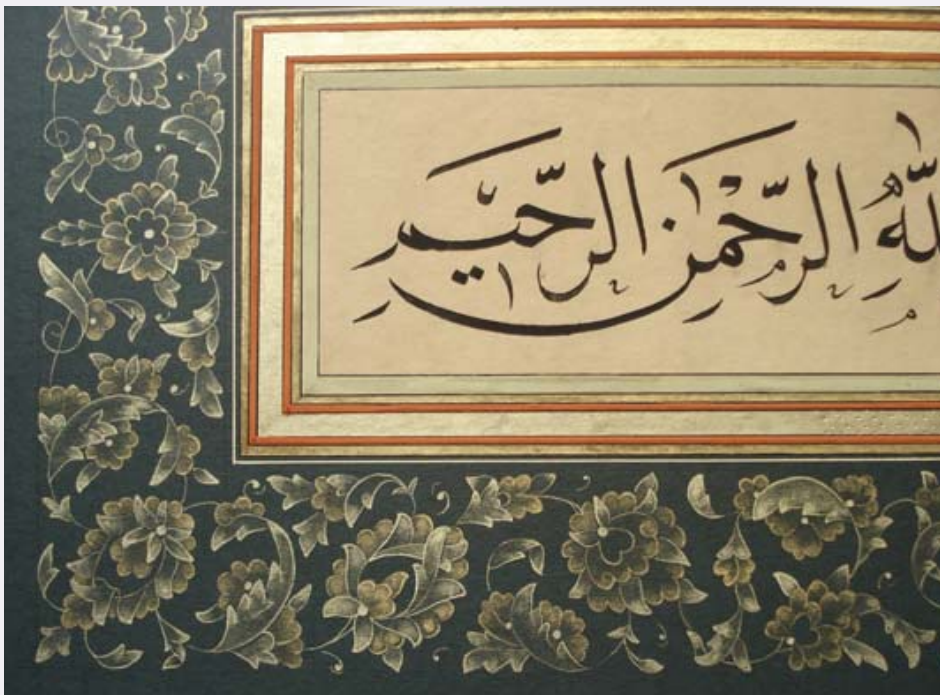 للّٰهِ الرَّحْمٰنِ الرَّحِيْمِ